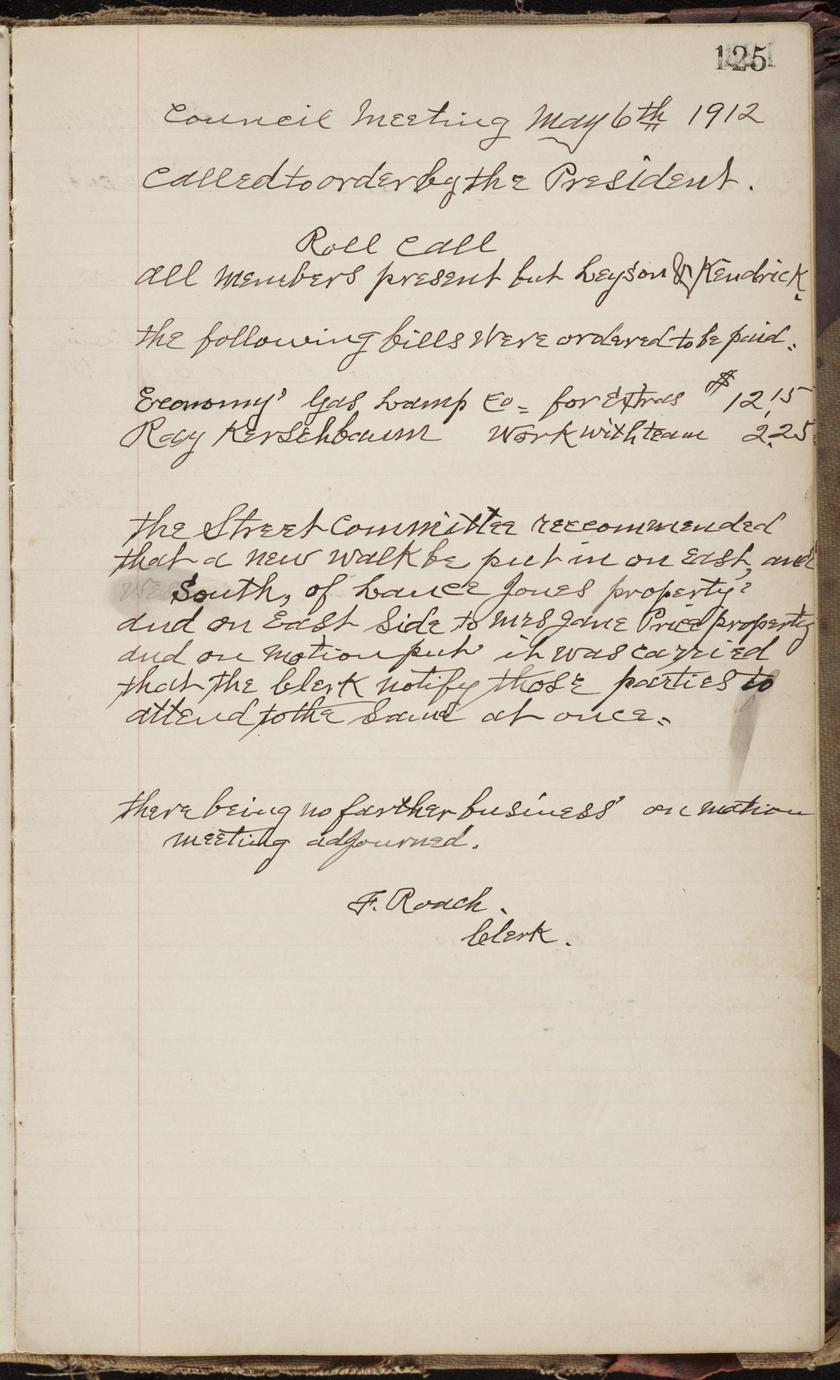 125
Council Meeting May 6th 1912
Called to order by the President.
Roll Call
all members present but Leyson & Kendrick.
the following bills were ordered to be paid.
Economy Gas Lamp Co. for Extras $12.15
Ray Kerschbaum Work with team 2.25
the Street Committee reccommended
that a new walk be put in on East, and
South, of Lance Jones property
and on East Side to Mrs Jane Price property
and on motion put it was carried
that the Clerk notify those parties to
attend to the Same at once.
there being no farther business on motion
meeting adjourned.
F. Roach.
Clerk.